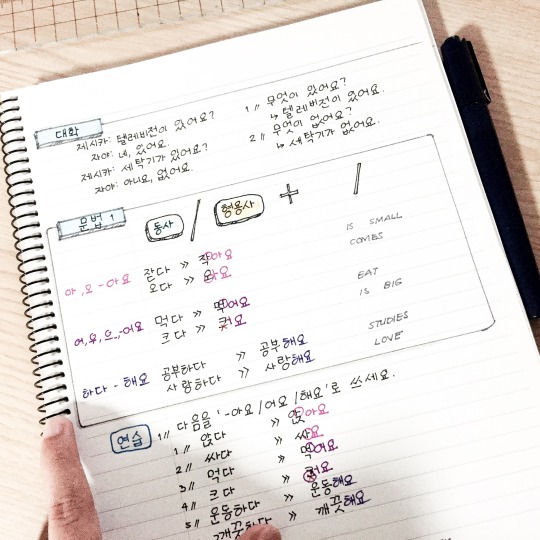 대화
제시카: 텔레비전이 있어요?
자야: 네, 있어요.
제시카: 세탁기가 있어요?
자야: 아니요, 없어요.
1 // 무엇이 있어요?
↳ 텔레비전이 있어요.
2 // 무엇이 없어요?
↳ 세탁기가 없어요.
문법 1
동사 / 형용사 + /
아, 오 - 아요
작다 » 작아요 IS SMALL
오다 » 와요 COMES
어, 우, 으.. - 어요
먹다 » 먹어요 EAT
크다 » 커요 IS BIG
하다 - 해요
공부하다 » 공부해요 STUDIES
사랑하다 » 사랑해요 LOVE
연습
1 // 다음을 '-아요 / 어요 / 해요'로 쓰세요.
1 // 앉다 » 앉아요
2 // 싸다 » 싸요
3 // 먹다 » 먹어요
4 // 크다 » 커요
5 // 운동하다 » 운동해요
» 깨끗해요